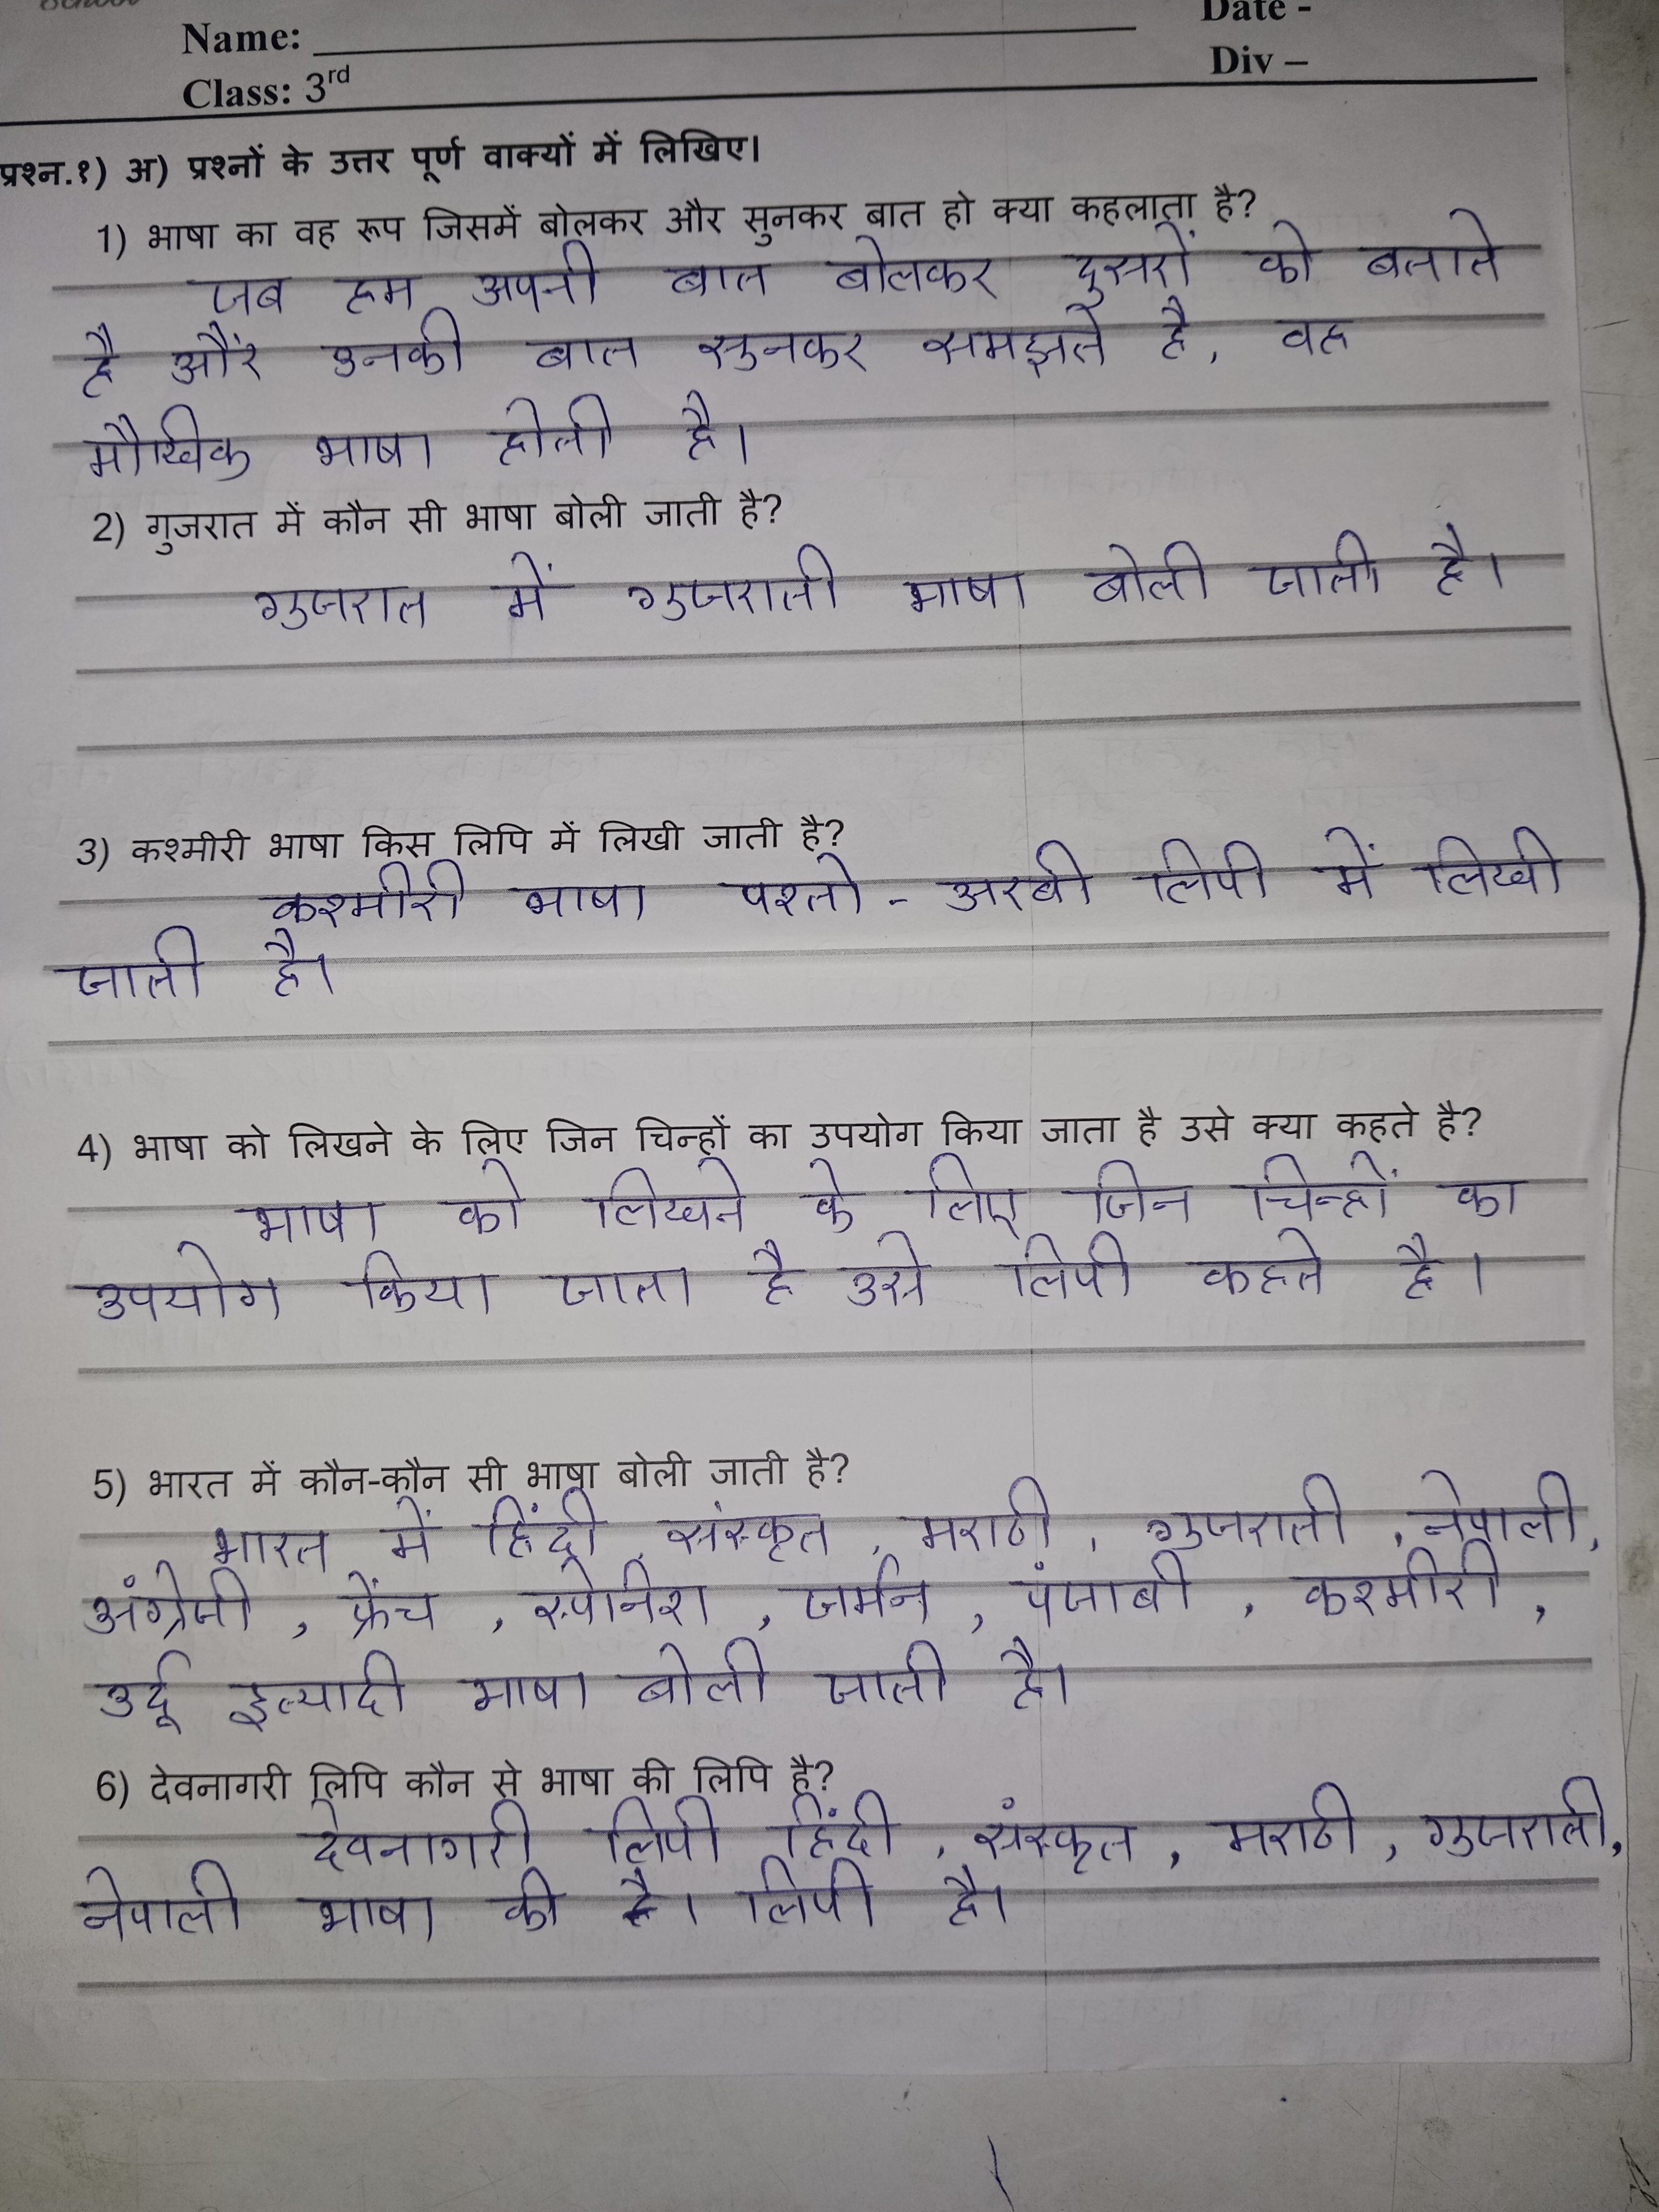 School
Date -
Name:
Div –
Class: 3rd
प्रश्न.१) अ) प्रश्नों के उत्तर पूर्ण वाक्यों में लिखिए।
1) भाषा का वह रूप जिसमें बोलकर और सुनकर बात हो क्या कहलाता है?
जब हम अपनी बात बोलकर दुसरों को बताते
है और उनकी बात सुनकर समझते है, वह
मौखिक भाषा होती है।
2) गुजरात में कौन सी भाषा बोली जाती है?
गुजरात में गुजराती भाषा बोली जाती है।
3) कश्मीरी भाषा किस लिपि में लिखी जाती है?
कश्मीरी भाषा पश्तो - अरबी लिपी में लिखी
जाती है।
4) भाषा को लिखने के लिए जिन चिन्हों का उपयोग किया जाता है उसे क्या कहते है?
भाषा को लिखने के लिए जिन चिन्हों का
उपयोग किया जाता है उसे लिपी कहते है।
5) भारत में कौन-कौन सी भाषा बोली जाती है?
भारत में हिंदी, संस्कृत, मराठी, गुजराती, नेपाली,
अंग्रेजी, फ्रेंच, स्पेनिश, जर्मन, पंजाबी, कश्मीरी,
उर्दू इत्यादी भाषा बोली जाती है।
6) देवनागरी लिपि कौन से भाषा की लिपि है?
देवनागरी लिपी हिंदी, संस्कृत, मराठी, गुजराती,
नेपाली भाषा की है। लिपी है।